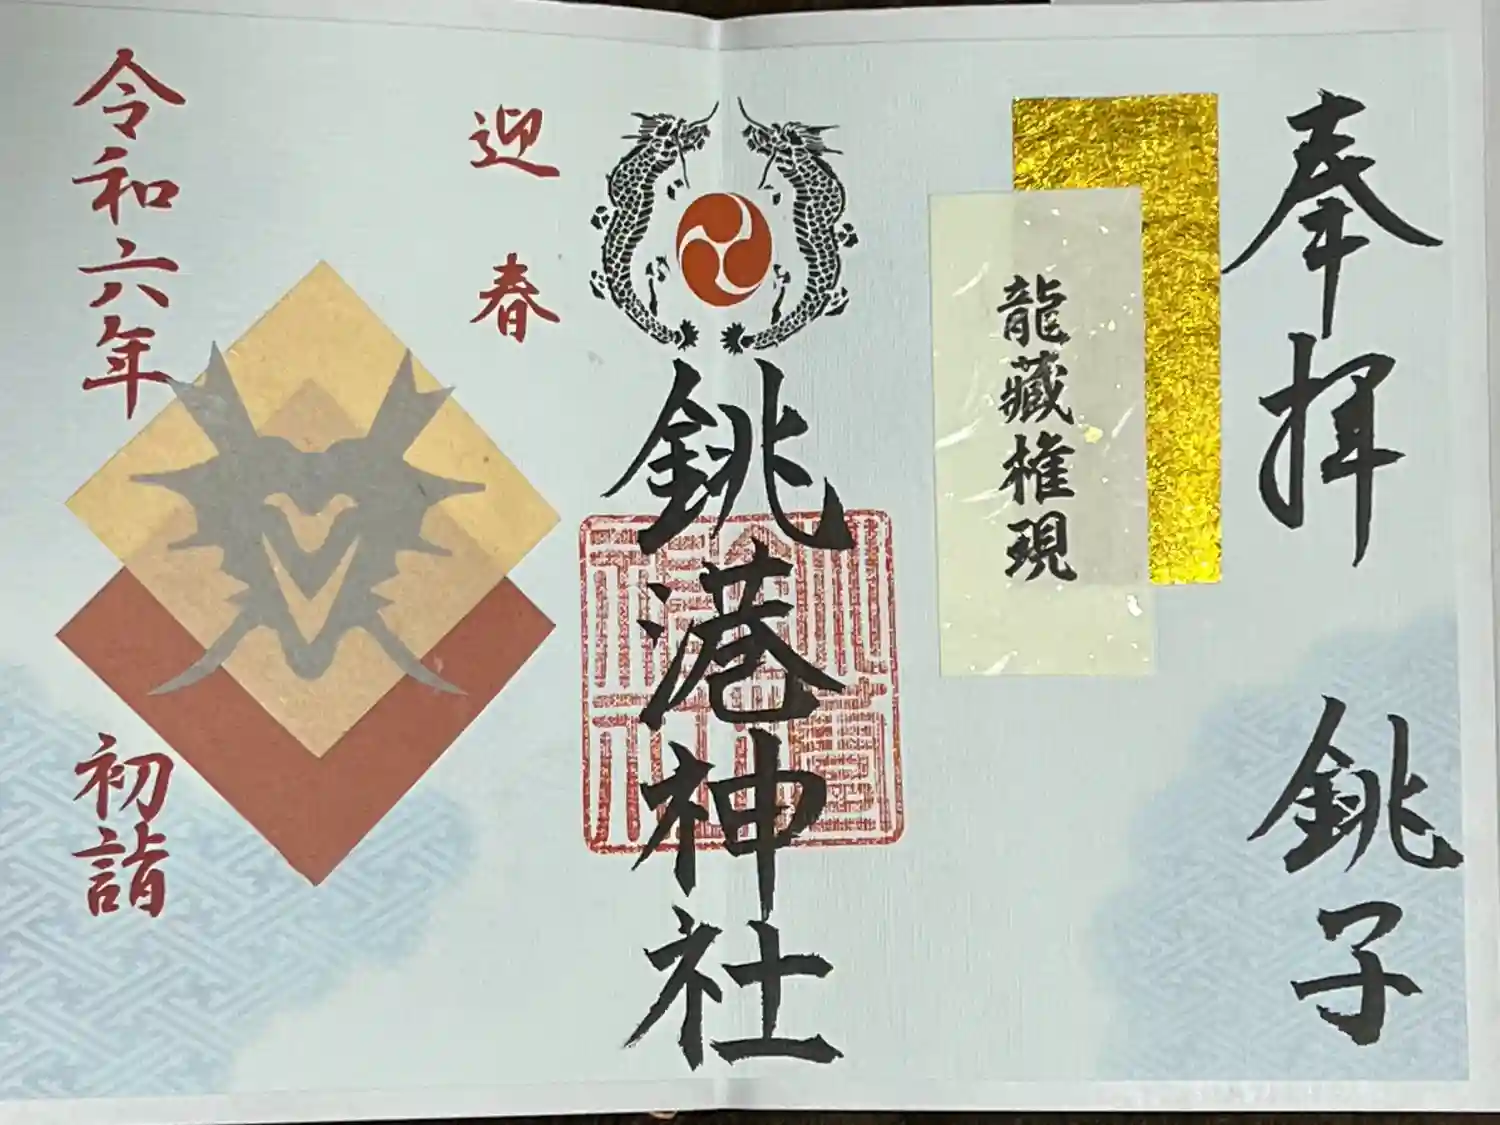 奉拝 銚子
龍藏権現
銚港神社
迎春
令和六年
初詣